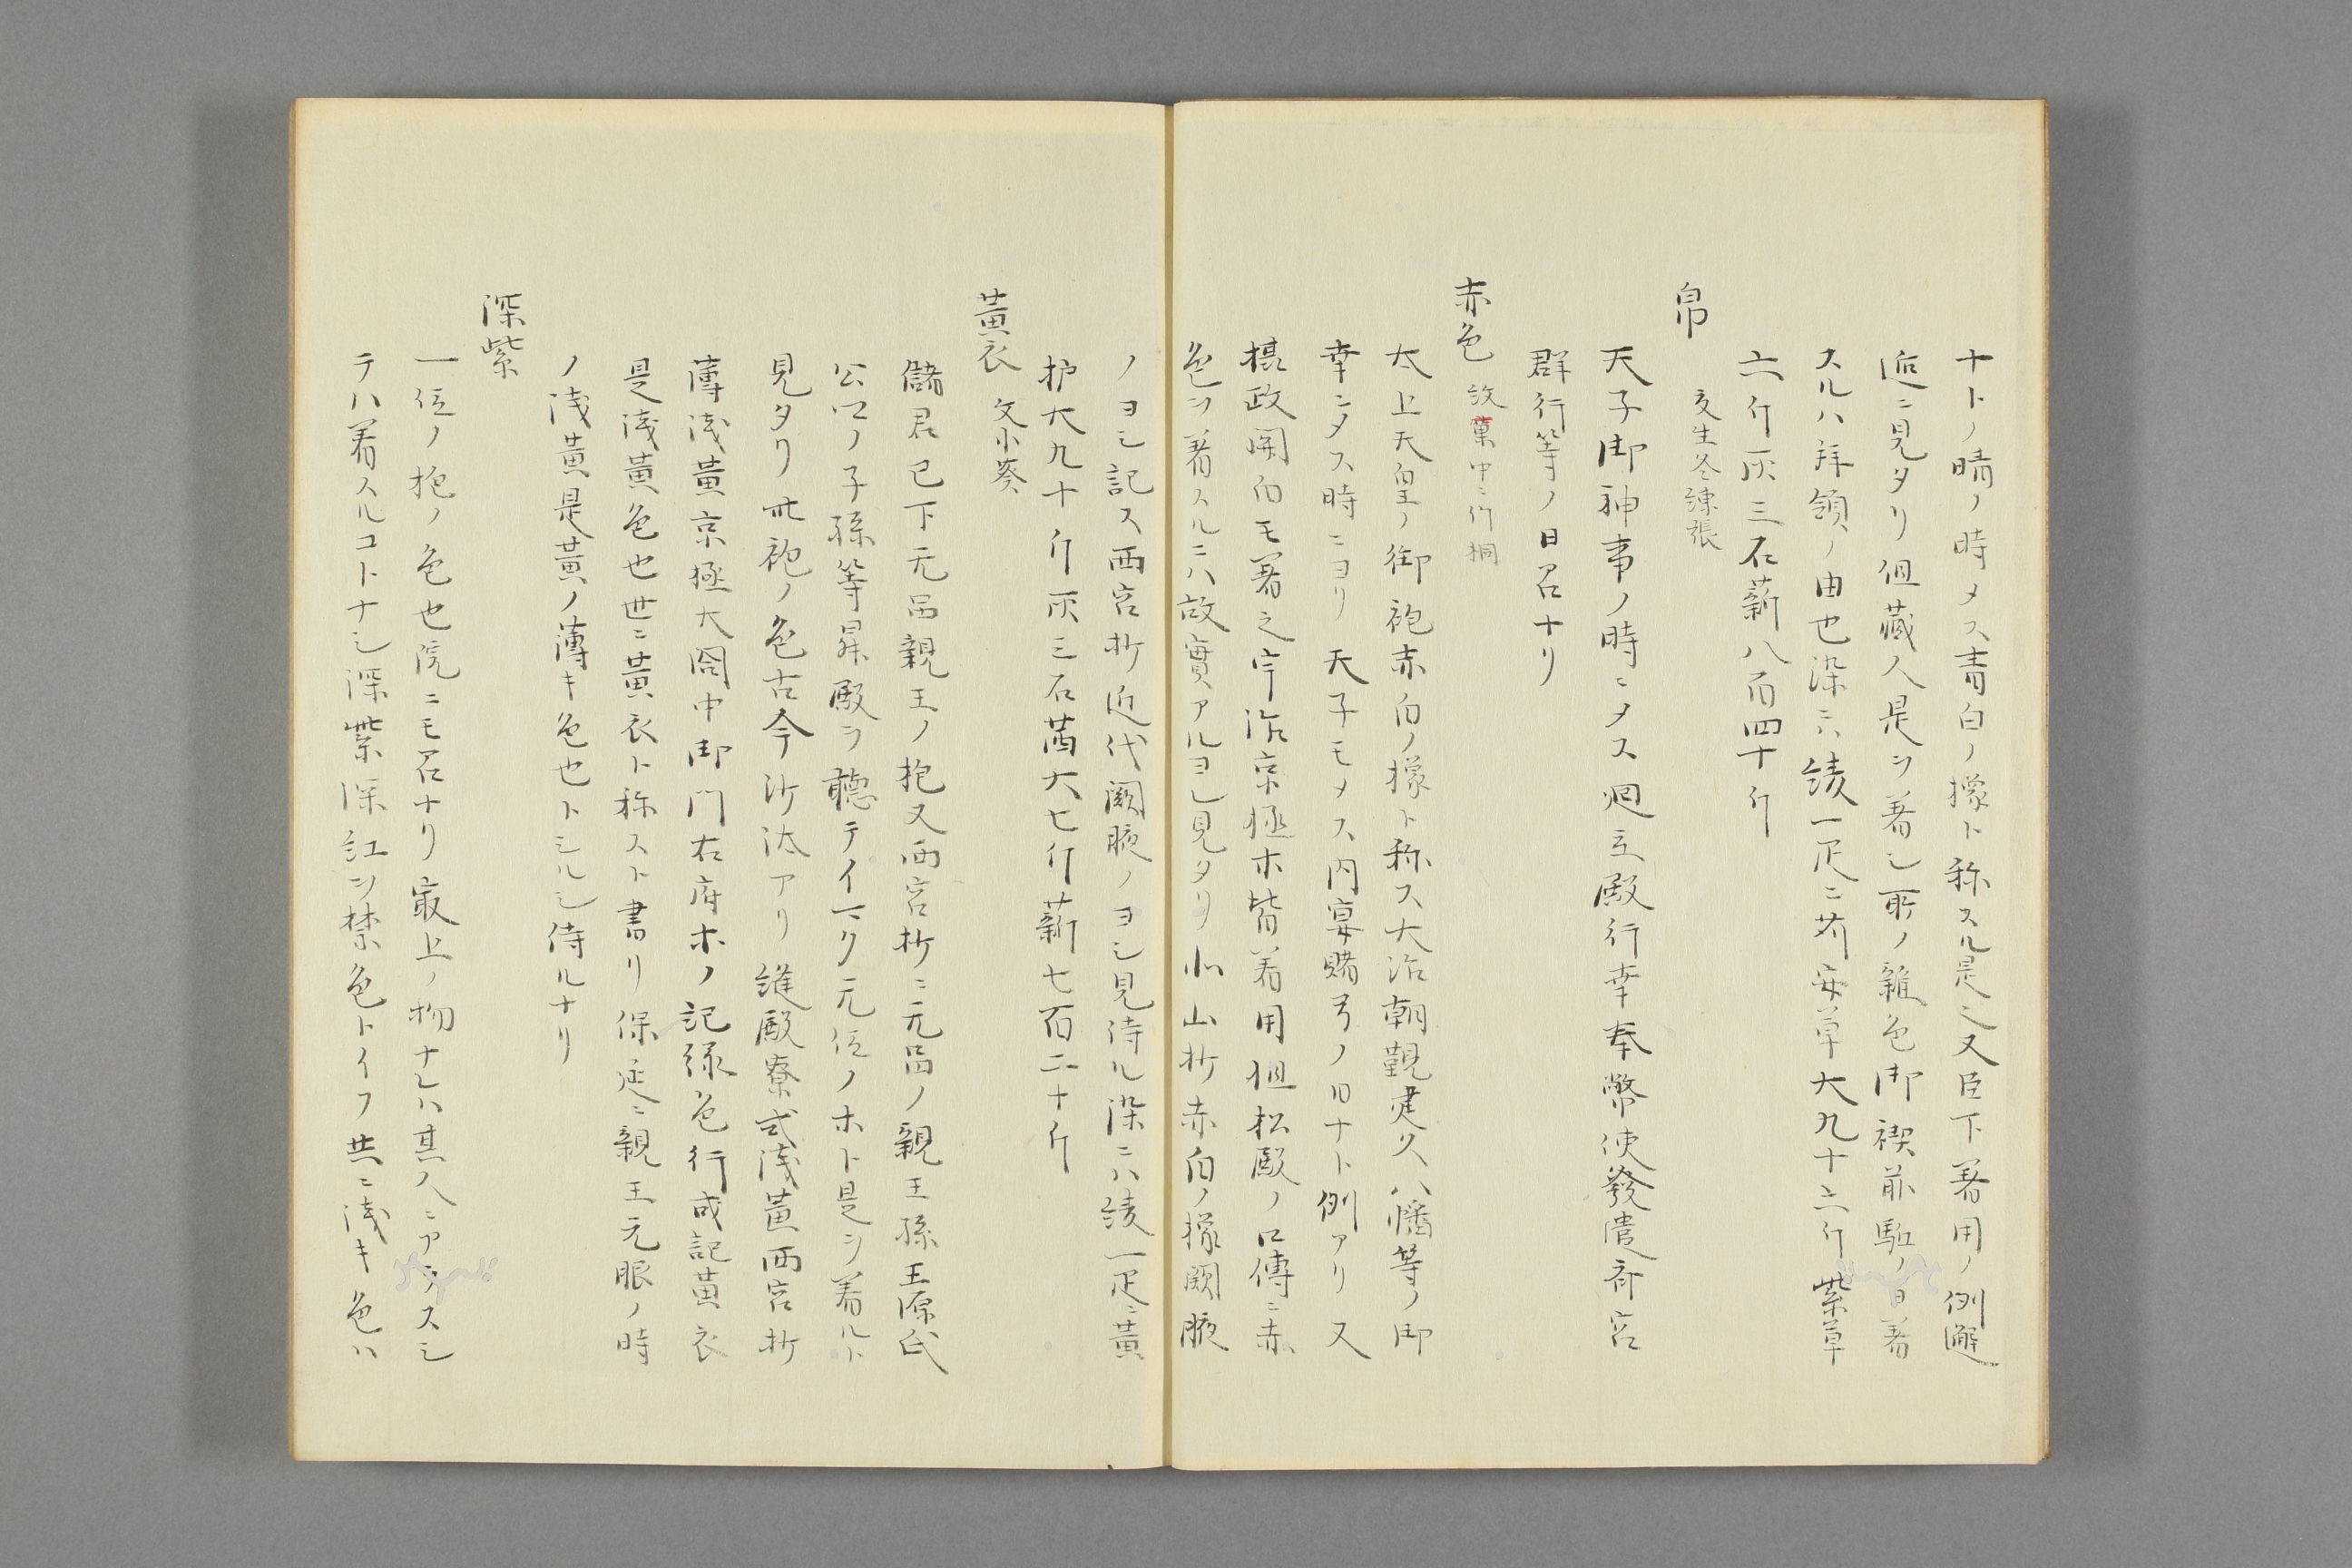 ナトノ晴ノ時メス青白ノ橡ト称スル是也又臣下着用ノ例邂
逅ニ見タリ但藏人是ヲ着シ所ノ雜色御禊前駈ノ日着
スルハ拜領ノ由也染ニハ綾一疋ニ苅安草大九十六斤紫草
六斤灰三石薪八百四十斤
帛 文生冬練張
天子御神事ノ時ニメス廻立殿行幸奉幣使發遣斎宮
群行等ノ日召ナリ
赤色 文菓中ニ竹桐
太上天皇ノ御袍赤白ノ橡ト称ス大治朝覲建久八幡等ノ御
幸ニメス時ニヨリ天子モメス内宴賭弓ノ日ナト例アリ又
摂政関白モ着之宇治京極ホ皆着用但松殿ノ口傳ニ赤
色ヲ着スルニハ故實アルヨシ見タリ北山抄赤白ノ橡闕腋
ノヨシ記ス西宮抄近代闕腋ノヨシ見侍ル染ニハ綾一疋ニ黄
櫨大九十斤灰三石茜大七斤薪七百二十斤
黄衣 文小葵
儲君已下无品親王ノ抱又西宮抄ニ无品ノ親王孫王源氏
公口ノ子孫等昇殿ヲ聴テイマタ无位ノホト是ヲ着ルト
見タリ此袍ノ色古今沙汰アリ縫殿寮式浅黄西宮抄
薄浅黄京極大閤中御門右府ホノ記緑色行成記黄衣
是浅黄色也世ニ黄衣ト称スト書リ保延ニ親王元服ノ時
ノ浅黄是黄ノ薄キ色也トシルシ侍ルナリ
深紫
一位ノ抱ノ色也院ニモ召ナリ最上ノ物ナレハ其人ニアラスシ
テハ着スルコトナシ深紫深紅ヲ禁色トイフ共ニ浅キ色ハ